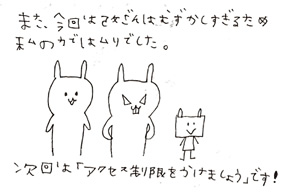 また、今回はてめどんはむずかしすぎるため
私の力ではムリでした。
次回は「アクセス制限をかけましょう」です!